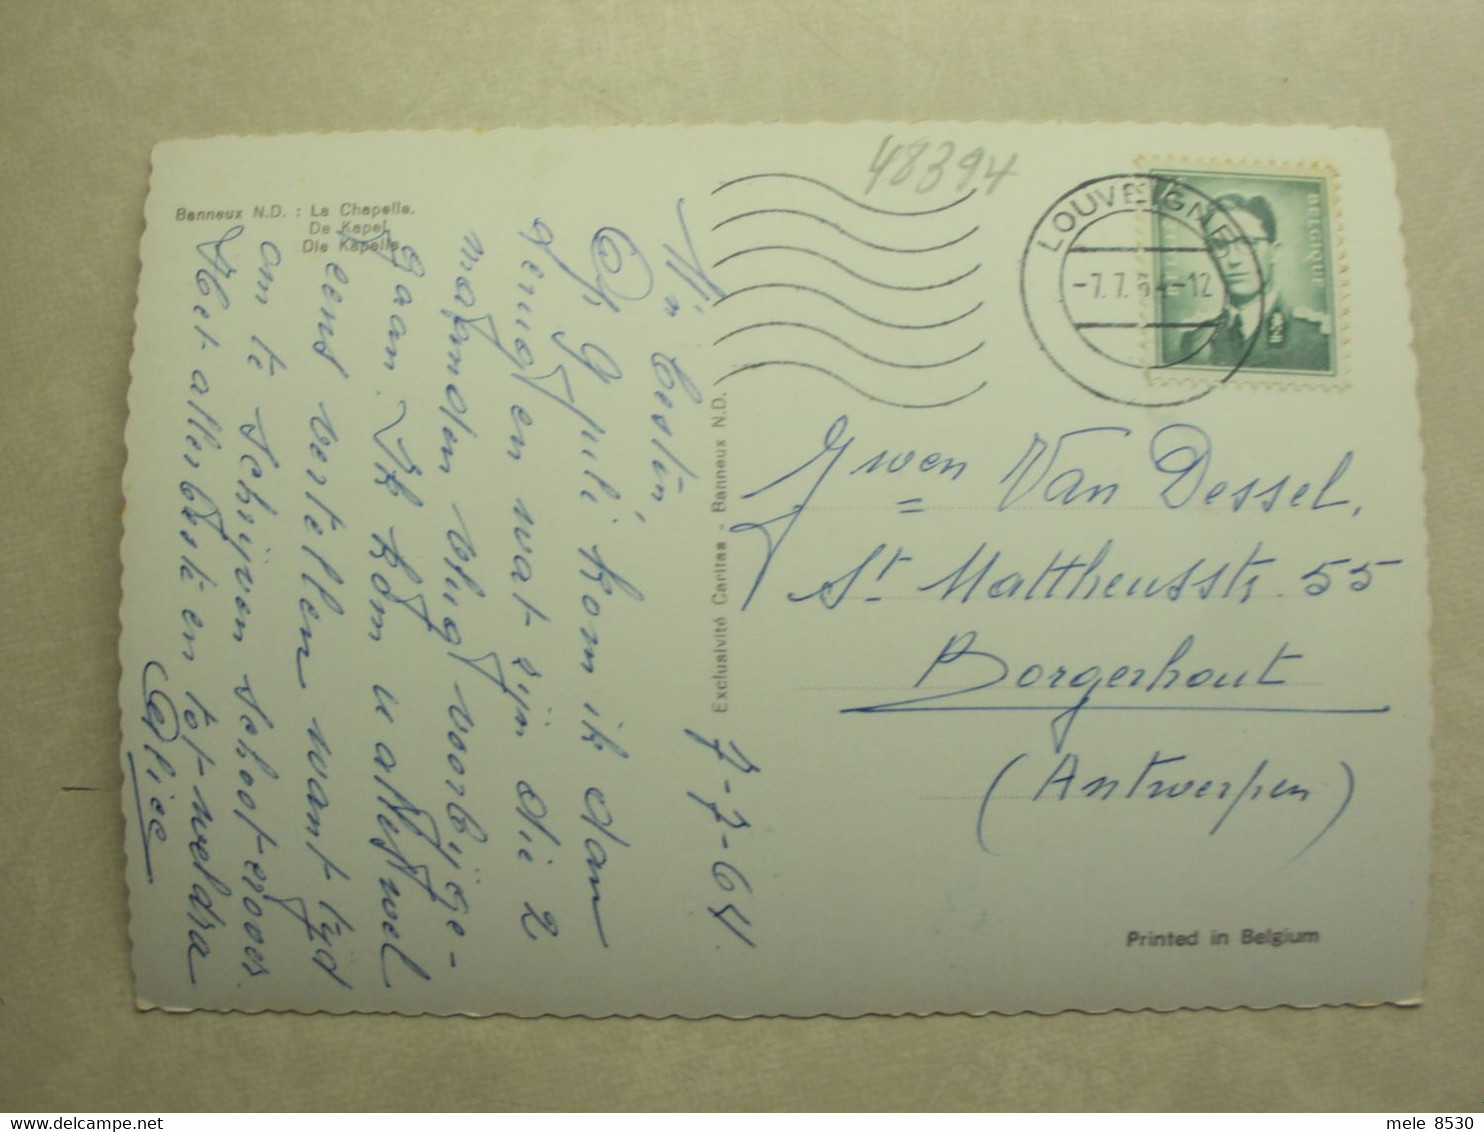 48394
LOUVEIGNE
-7.7.64-12
BELGIQUE
Banneux N.D. : La Chapelle.
De Kapel.
Die Kapelle.
Exclusivité Caritas - Banneux N.D.
7-7-64
M'n bestin,
Op 9 juli kom ik dan
terug en wat zijn die 2
maanden vlug voorbijge-
gaan. Ik kom u alles wel
eens vertellen want tijd
om te schrijven schoot er over.
Het allerbeste en tot weldra
Alice
Van Dessel,
St Mattheusstr. 55
Borgerhout
(Antwerpen)
Printed in Belgium
mele 8530